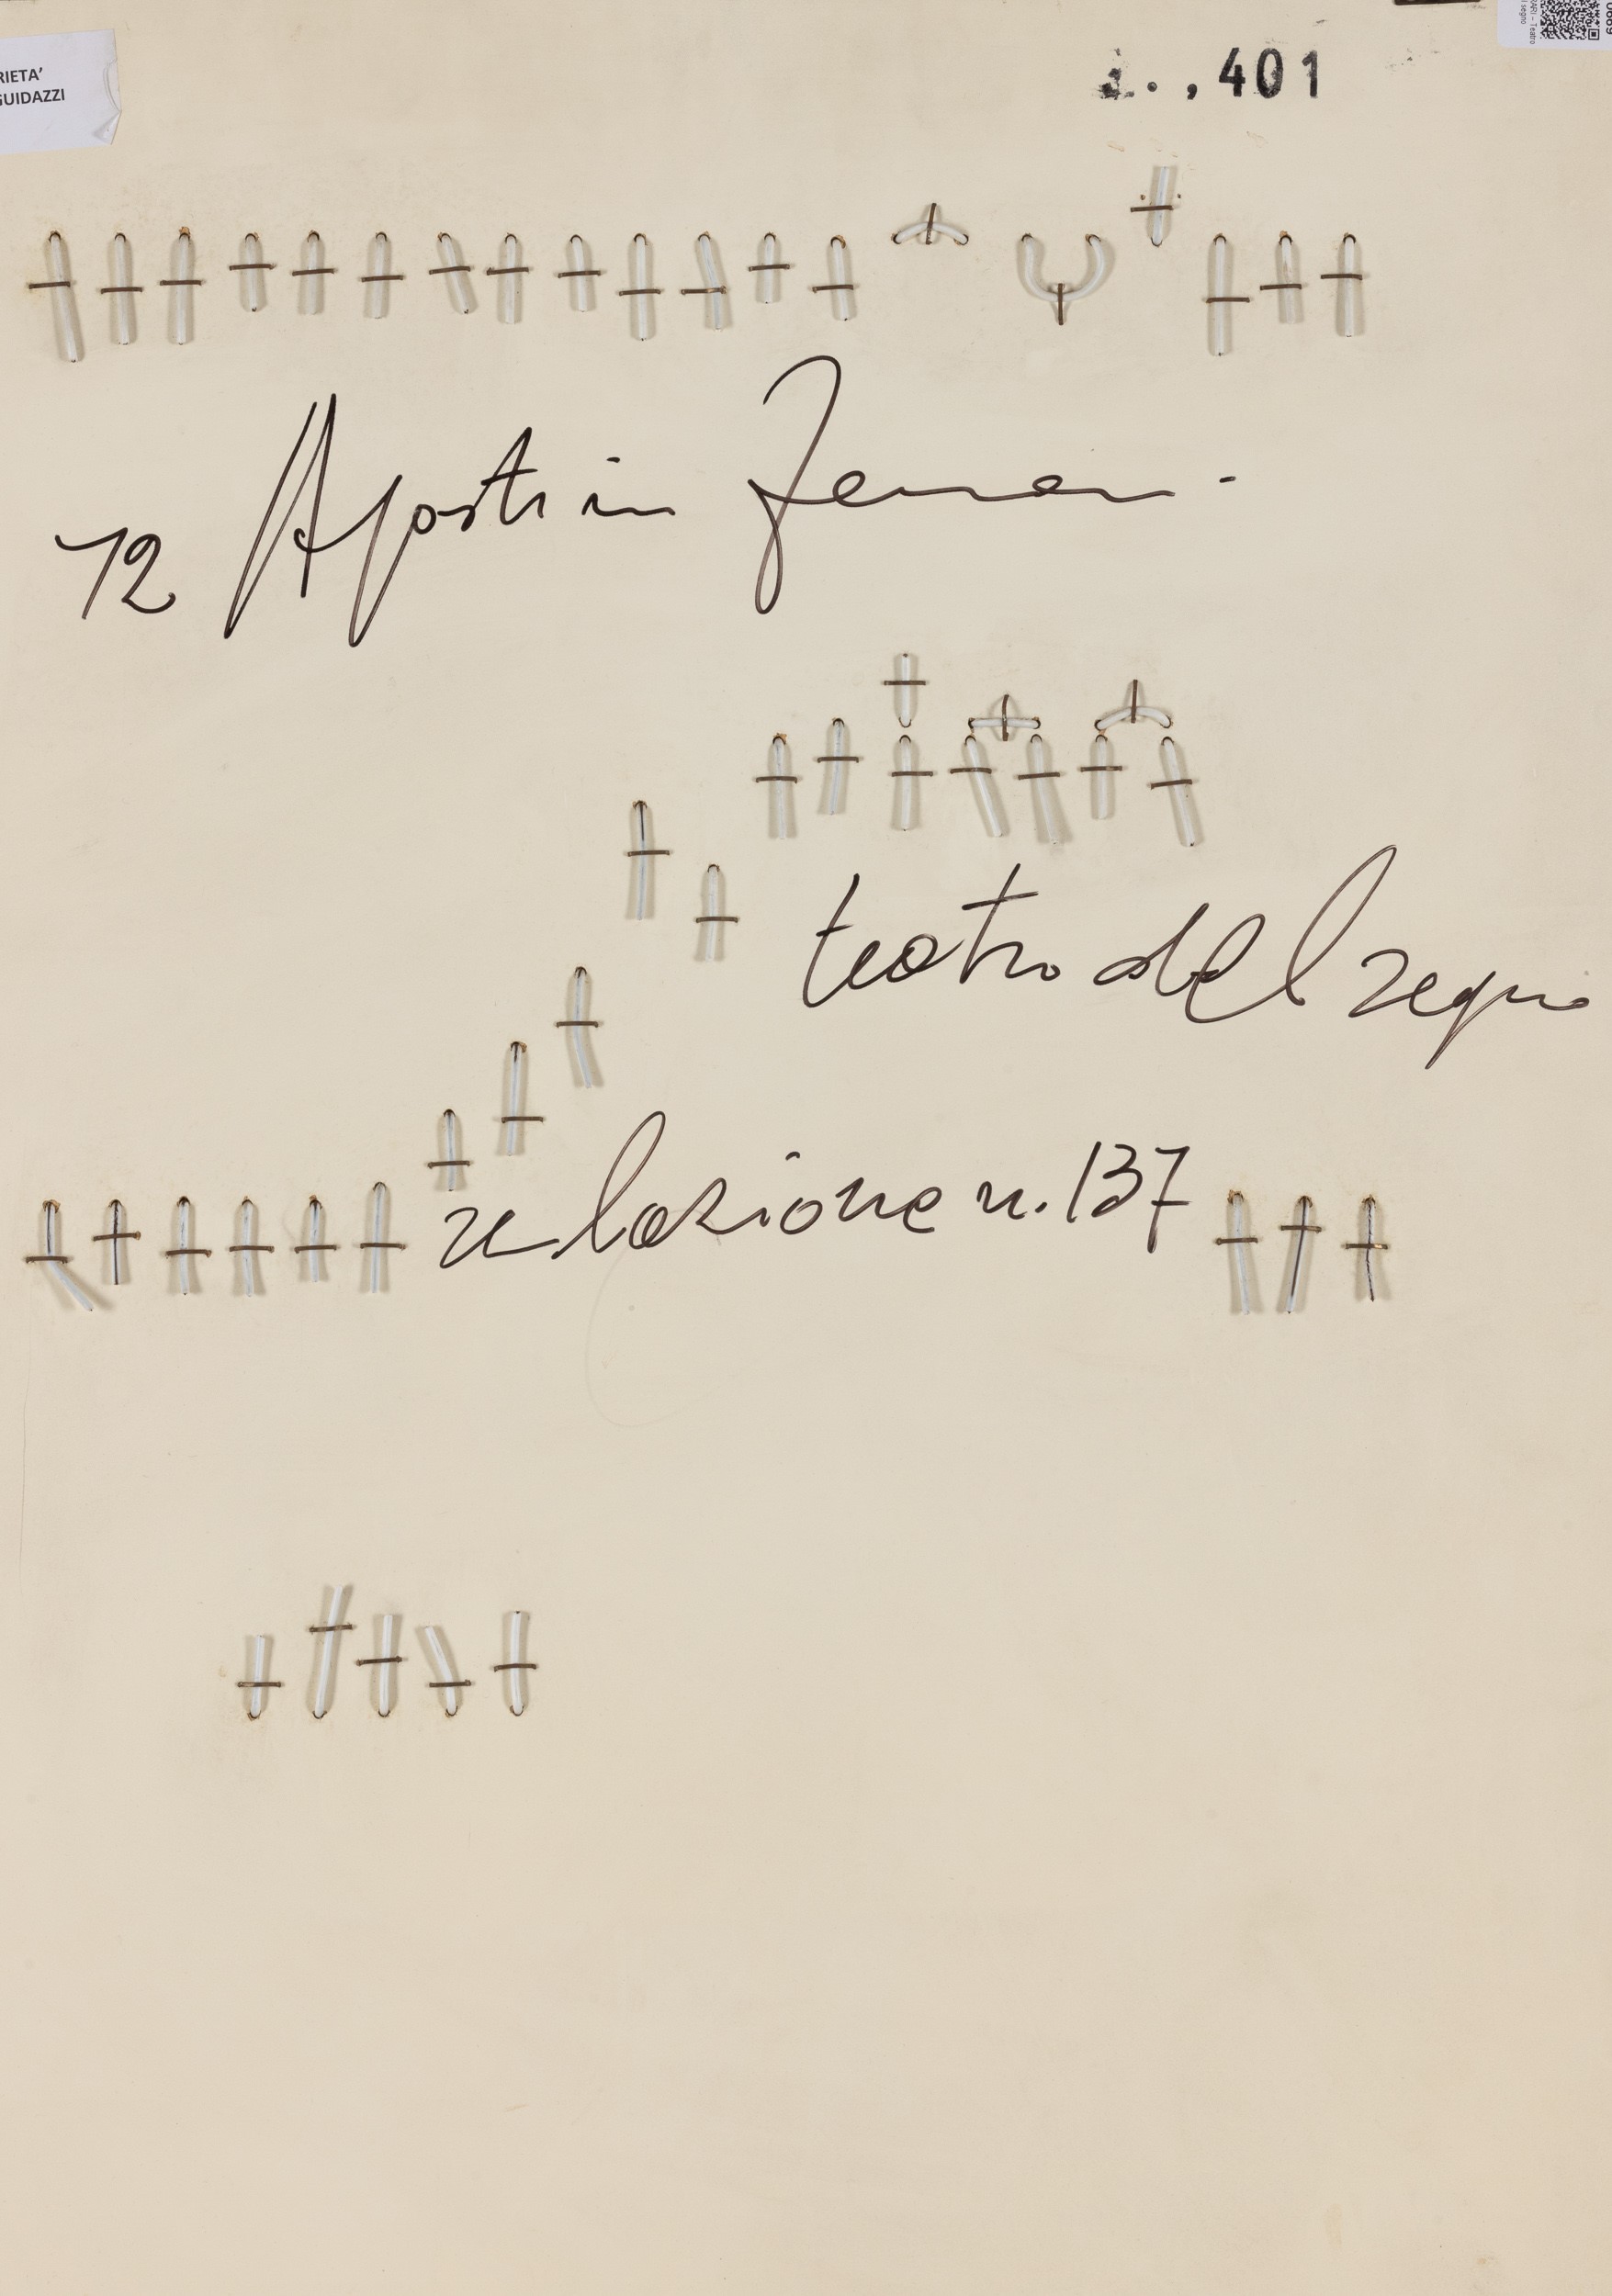 RIETA'
GUIDAZZI
0689
RARI – Teatro
l segno
401
72 Agostin Ferrari
teatro del segno
relazione n. 137